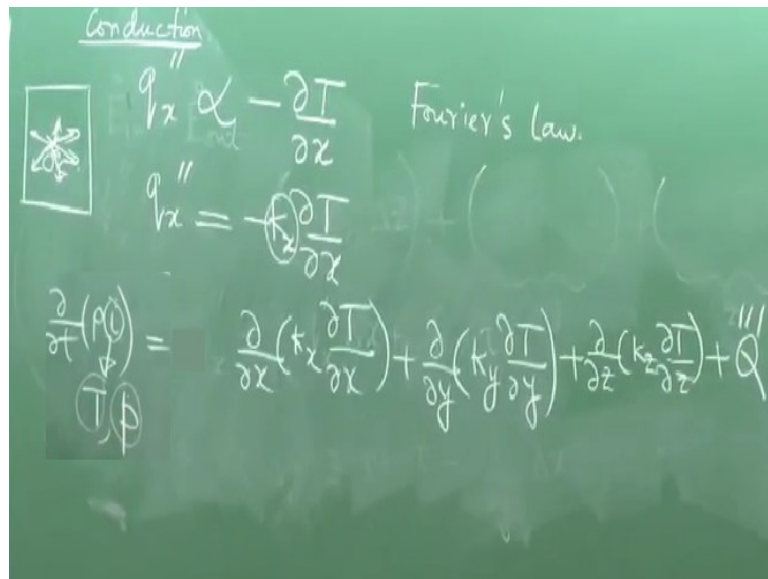 Conduction
q″ₓ ∝ − ∂T/∂x Fourier's Law.
q″ₓ = −kₓ ∂T/∂x
∂/∂t (ρi) = ∂/∂x (kₓ ∂T/∂x) + ∂/∂y (k_y ∂T/∂y) + ∂/∂z (k_z ∂T/∂z) + Q‴
T, p